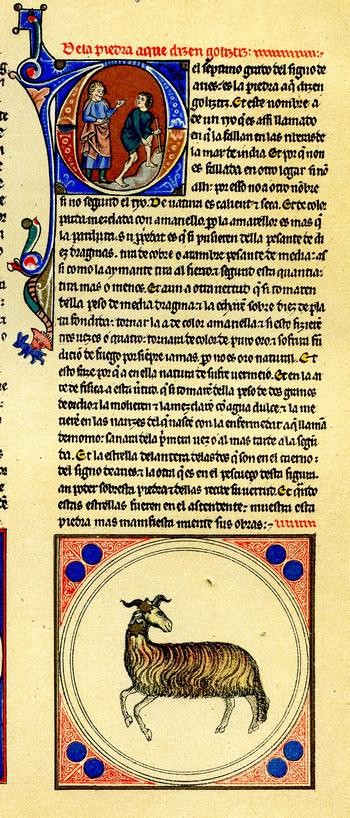 De la piedra aque dizen goliztiz:
el septimo grado del signo de
aries es la piedra aq̃ dizen
goliztiz. Et este nombre a
de un ryo q̃ es assi llamado
en q̃ la fallan en las riberas de
la mar de india. Et por q̃ non
es fallada en otro logar si nõ
alli: por esso no a otro nõbre
si no segund el ryo. De natura es calient ⁊ seca. Et de color
parda mezclada con amariello. po la amarellor es mas q̃
la es q̃ si pusieren della pesante de di
ez dragmas. tira de cobre o arambre pesante de media: as
si como la aymante tira al fierro: segund esta quantia:
tira mas o menos. Et aun a otra uertud q̃ si tomaren
della peso de media dragma: ⁊ la echarẽ sobre diez de pla
ta fondida: tornar la a de color amariella. ⁊ si esto fizierẽ
tres uezes o quatro: tornara de color de puro oro: ⁊ sofrira fũ
diciõ de fuego por siẽpre iamas. po no es oro natural. Et
esto faze por q̃ a en ella natura de Et en la ar
te de fisica a esta uertud. q̃ si tomarẽ della peso de dos granos
de ordio: ⁊ la molieren ⁊ la mezclarẽ cõ agua dulce: ⁊ la me
tierẽ en las narizes del q̃ nasce con la enfermedat aq̃ llamã
demonio: sanara della p̃mera uez o al mas tarde a la segũ
da. Et la estrella delantera de las dos q̃ son en el cuerno:
del signo de aries: ⁊ la otra q̃ es en el pescueço desta figura.
an poder sobresta piedra ⁊ dellas recibe su uertud. Et q̃ndo
estas estrellas fueren en el ascendente: muestra esta
piedra mas manifiesta miente sus obras: